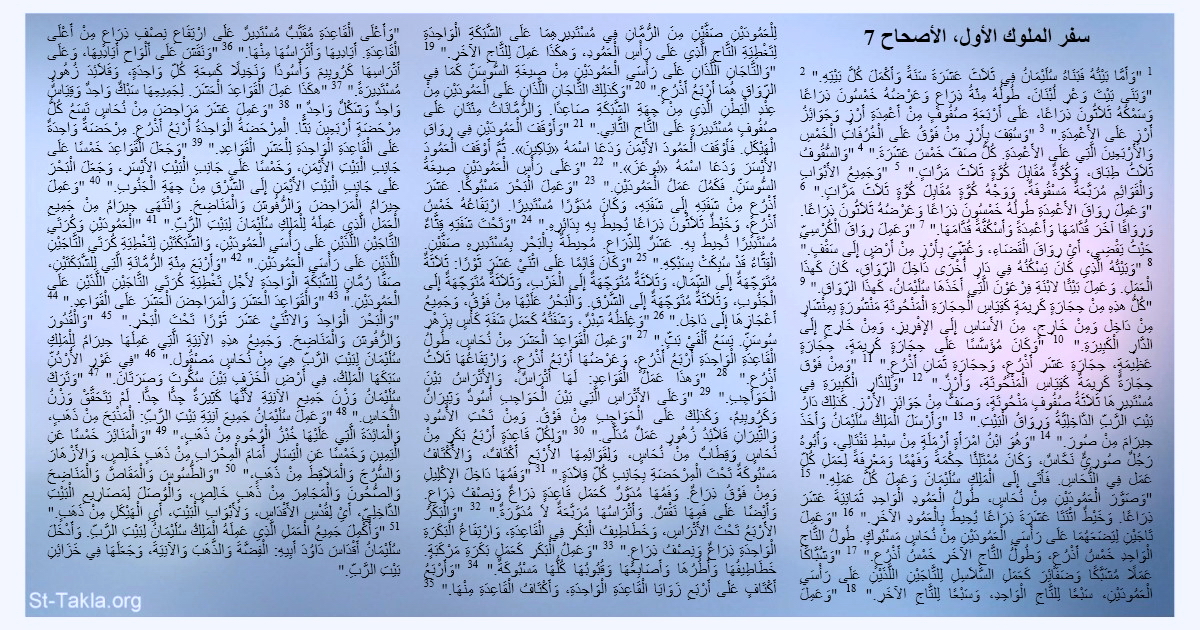 سفر الملوك الأول، الأصحاح 7
1 "وَأَمَّا بَيْتُهُ فَبَنَاهُ سُلَيْمَانُ فِي ثَلاَثَ عَشَرَةَ سَنَةً وَأَكْمَلَ كُلَّ بَيْتِهِ." 2
"وَبَنَى بَيْتَ وَعْرِ لُبْنَانَ، طُولُهُ مِئَةُ ذِرَاعٍ وَعَرْضُهُ خَمْسُونَ ذِرَاعًا
وَسَمْكُهُ ثَلاَثُونَ ذِرَاعًا، عَلَى أَرْبَعَةِ صُفُوفٍ مِنْ أَعْمِدَةِ أَرْزٍ وَجَوَائِزُ
أَرْزٍ عَلَى الأَعْمِدَةِ." 3 "وَسُقِفَ بِأَرْزٍ مِنْ فَوْقُ عَلَى الْغُرُفَاتِ الْخَمْسِ
وَالأَرْبَعِينَ الَّتِي عَلَى الأَعْمِدَةِ. كُلُّ صَفّ خَمْسَ عَشَرَةَ." 4 "وَالسُّقُوفُ
ثَلاَثُ طِبَاق، وَكُوَّةٌ مُقَابِلَ كُوَّةٍ ثَلاَثَ مَرَّاتٍ." 5 "وَجَمِيعُ الأَبْوَابِ
وَالْقَوَائِمِ مُرَبَّعَةٌ مَسْقُوفَةٌ، وَوَجْهُ كُوَّةٍ مُقَابِلَ كُوَّةٍ ثَلاَثَ مَرَّاتٍ." 6
"وَعَمِلَ رِوَاقَ الأَعْمِدَةِ طُولُهُ خَمْسُونَ ذِرَاعًا وَعَرْضُهُ ثَلاَثُونَ ذِرَاعًا.
وَرِوَاقًا آخَرَ قُدَّامَهَا وَأَعْمِدَةً وَأُسْكُفَّةً قُدَّامَهَا." 7 "وَعَمِلَ رِوَاقَ الْكُرْسِيِّ
حَيْثُ يَقْضِي، أَيْ رِوَاقَ الْقَضَاءِ، وَغُشِّيَ بِأَرْزٍ مِنْ أَرْضٍ إِلَى سَقْفٍ."
8 "وَبَيْتُهُ الَّذِي كَانَ يَسْكُنُهُ فِي دَارٍ أُخْرَى دَاخِلَ الرِّوَاقِ، كَانَ كَهذَا
الْعَمَلِ. وَعَمِلَ بَيْتًا لابْنَةِ فِرْعَوْنَ الَّتِي أَخَذَهَا سُلَيْمَانُ، كَهذَا الرِّوَاقِ." 9
"كُلُّ هذِهِ مِنْ حِجَارَةٍ كَرِيمَةٍ كَقِيَاسِ الْحِجَارَةِ الْمَنْحُوتَةِ مَنْشُورَةٍ بِمِنْشَارٍ
مِنْ دَاخِل وَمِنْ خَارِجٍ، مِنَ الأَسَاسِ إِلَى الإِفْرِيزِ، وَمِنْ خَارِجٍ إِلَى
الدَّارِ الْكَبِيرَةِ." 10 "وَكَانَ مُؤَسَّسًا عَلَى حِجَارَةٍ كَرِيمَةٍ، حِجَارَةٍ
عَظِيمَةٍ، حِجَارَةِ عَشَرِ أَذْرُعٍ، وَحِجَارَةِ ثَمَانِ أَذْرُعٍ." 11 "وَمِنْ فَوْقُ
حِجَارَةٌ كَرِيمَةٌ كَقِيَاسِ الْمَنْحُوتَةِ، وَأَرْزٌ." 12 "وَلِلدَّارِ الْكَبِيرَةِ فِي
مُسْتَدِيرِهَا ثَلاَثَةُ صُفُوفٍ مَنْحُوتَةٍ، وَصَفٌّ مِنْ جَوَائِزِ الأَرْزِ. كَذلِكَ دَارُ
بَيْتِ الرَّبِّ الدَّاخِلِيَّةُ وَرِوَاقُ الْبَيْتِ." 13 "وَأَرْسَلَ الْمَلِكُ سُلَيْمَانُ وَأَخَذَ
حِيرَامَ مِنْ صُورَ." 14 "وَهُوَ ابْنُ امْرَأَةٍ أَرْمَلَةٍ مِنْ سِبْطِ نَفْتَالِي، وَأَبُوهُ
رَجُلٌ صُورِيٌّ نَحَّاسٌ، وَكَانَ مُمْتَلِئًا حِكْمَةً وَفَهْمًا وَمَعْرِفَةً لِعَمَلِ كُلِّ
عَمَل فِي النُّحَاسِ. فَأَتَى إِلَى الْمَلِكِ سُلَيْمَانَ وَعَمِلَ كُلَّ عَمَلِهِ." 15
"وَصَوَّرَ الْعَمُودَيْنِ مِنْ نُحَاسٍ، طُولُ الْعَمُودِ الْوَاحِدِ ثَمَانِيَةَ عَشَرَ
ذِرَاعًا. وَخَيْطٌ اثْنَتَا عَشَرَةَ ذِرَاعًا يُحِيطُ بِالْعَمُودِ الآخَرِ." 16 "وَعَمِلَ
تَاجَيْنِ لِيَضَعَهُمَا عَلَى رَأْسَيِ الْعَمُودَيْنِ مِنْ نُحَاسٍ مَسْبُوكٍ. طُولُ التَّاجِ
الْوَاحِدِ خَمْسُ أَذْرُعٍ، وَطُولُ التَّاجِ الآخَرِ خَمْسُ أَذْرُعٍ." 17 "وَشُبَّاكًا
عَمَلاً مُشَبَّكًا وَضَفَائِرَ كَعَمَلِ السَّلاَسِلِ لِلتَّاجَيْنِ اللَّذَيْنِ عَلَى رَأْسَيِ
الْعَمُودَيْنِ، سَبْعًا لِلتَّاجِ الْوَاحِدِ، وَسَبْعًا لِلتَّاجِ الآخَرِ." 18 "وَعَمِلَ
لِلْعَمُودَيْنِ صَفَّيْنِ مِنَ الرُّمَّانِ فِي مُسْتَدِيرِهِمَا عَلَى الشَّبَكَةِ الْوَاحِدَةِ
لِتَغْطِيَةِ التَّاجِ الَّذِي عَلَى رَأْسِ الْعَمُودِ، وَهكَذَا عَمِلَ لِلتَّاجِ الآخَرِ." 19
"وَالتَّاجَانِ اللَّذَانِ عَلَى رَأْسَيِ الْعَمُودَيْنِ مِنْ صِيغَةِ السُّوسَنِّ كَمَا فِي
الرِّوَاقِ هُمَا أَرْبَعُ أَذْرُعٍ." 20 "وَكَذلِكَ التَّاجَانِ اللَّذَانِ عَلَى الْعَمُودَيْنِ مِنْ
عِنْدِ الْبَطْنِ الَّذِي مِنْ جِهَةِ الشَّبَكَةِ صَاعِدًا. وَالرُّمَّانَاتُ مِئَتَانِ عَلَى
صُفُوفٍ مُسْتَدِيرَةٍ عَلَى التَّاجِ الثَّانِي." 21 "وَأَوْقَفَ الْعَمُودَيْنِ فِي رِوَاقِ
الْهَيْكَلِ. فَأَوْقَفَ الْعَمُودَ الأَيْمَنَ وَدَعَا اسْمَهُ «يَاكِينَ». ثُمَّ أَوْقَفَ الْعَمُودَ
الأَيْسَرَ وَدَعَا اسْمَهُ «بُوعَزَ»." 22 "وَعَلَى رَأْسِ الْعَمُودَيْنِ صِيغَةُ
السُّوسَنِّ. فَكَمُلَ عَمَلُ الْعَمُودَيْنِ." 23 "وَعَمِلَ الْبَحْرَ مَسْبُوكًا. عَشَرَ
أَذْرُعٍ مِنْ شَفَتِهِ إِلَى شَفَتِهِ، وَكَانَ مُدَوَّرًا مُسْتَدِيرًا. ارْتِفَاعُهُ خَمْسُ
أَذْرُعٍ، وَخَيْطٌ ثَلاَثُونَ ذِرَاعًا يُحِيطُ بِهِ بِدَائِرِهِ." 24 "وَتَحْتَ شَفَتِهِ قِثَّاءٌ
مُسْتَدِيرًا تُحِيطُ بِهِ. عَشَرٌ لِلذِّرَاعِ. مُحِيطَةٌ بِالْبَحْرِ بِمُسْتَدِيرِهِ صَفَّيْنِ.
الْقِثَّاءُ قَدْ سُبِكَتْ بِسَبْكِهِ." 25 "وَكَانَ قَائِمًا عَلَى اثْنَيْ عَشَرَ ثَوْرًا: ثَلاَثَةٌ
مُتَوَجِّهَةٌ إِلَى الشِّمَالِ، وَثَلاَثَةٌ مُتَوَجِّهَةٌ إِلَى الْغَرْبِ، وَثَلاَثَةٌ مُتَوَجِّهَةٌ إِلَى
الْجَنُوبِ، وَثَلاَثَةٌ مُتَوَجِّهَةٌ إِلَى الشَّرْقِ. وَالْبَحْرُ عَلَيْهَا مِنْ فَوْقُ، وَجَمِيعُ
أَعْجَازِهَا إِلَى دَاخِل." 26 "وَغِلَظُهُ شِبْرٌ، وَشَفَتُهُ كَعَمَلِ شَفَةِ كَأْسٍ بِزَهْرِ
سُوسَنٍّ. يَسَعُ أَلْفَيْ بَثٍّ." 27 "وَعَمِلَ الْقَوَاعِدَ الْعَشَرَ مِنْ نُحَاسٍ، طُولُ
الْقَاعِدَةِ الْوَاحِدَةِ أَرْبَعُ أَذْرُعٍ، وَعَرْضُهَا أَرْبَعُ أَذْرُعٍ، وَارْتِفَاعُهَا ثَلاَثُ
أَذْرُعٍ." 28 "وَهذَا عَمَلُ الْقَوَاعِدِ: لَهَا أَتْرَاسٌ، وَالأَتْرَاسُ بَيْنَ
الْحَوَاجِبِ." 29 "وَعَلَى الأَتْرَاسِ الَّتِي بَيْنَ الْحَوَاجِبِ أُسُودٌ وَثِيرَانٌ
وَكَرُوبِيمُ، وَكَذلِكَ عَلَى الْحَوَاجِبِ مِنْ فَوْقُ. وَمِنْ تَحْتِ الأُسُودِ
وَالثِّيرَانِ قَلاَئِدُ زُهُورٍ عَمَلٌ مُدَلَّى." 30 "وَلِكُلِّ قَاعِدَةٍ أَرْبَعُ بَكَرٍ مِنْ
نُحَاسٍ وَقِطَابٌ مِنْ نُحَاسٍ، وَلِقَوَائِمِهَا الأَرْبَعِ أَكْتَافٌ، وَالأَكْتَافُ
مَسْبُوكَةٌ تَحْتَ الْمِرْحَضَةِ بِجَانِبِ كُلِّ قِلاَدَةٍ." 31 "وَفَمُهَا دَاخِلَ الإِكْلِيلِ
وَمِنْ فَوْقُ ذِرَاعٌ. وَفَمُهَا مُدَوَّرٌ كَعَمَلِ قَاعِدَةٍ ذِرَاعٌ وَنِصْفُ ذِرَاعٍ.
وَأَيْضًا عَلَى فَمِهَا نَقْشٌ. وَأَتْرَاسُهَا مُرَبَّعَةٌ لاَ مُدَوَّرَةٌ." 32 "وَالْبَكَرُ
الأَرْبَعُ تَحْتَ الأَتْرَاسِ، وَخَطَاطِيفُ الْبَكَرِ فِي الْقَاعِدَةِ، وَارْتِفَاعُ الْبَكَرَةِ
الْوَاحِدَةِ ذِرَاعٌ وَنِصْفُ ذِرَاعٍ." 33 "وَعَمَلُ الْبَكَرِ كَعَمَلِ بَكَرَةِ مَرْكَبَةٍ.
خَطَاطِيفُهَا وَأُطُرُهَا وَأَصَابِعُهَا وَقُبُوبُهَا كُلُّهَا مَسْبُوكَةٌ." 34 "وَأَرْبَعُ
أَكْتَافٍ عَلَى أَرْبَعِ زَوَايَا الْقَاعِدَةِ الْوَاحِدَةِ، وَأَكْتَافُ الْقَاعِدَةِ مِنْهَا." 35
"وَأَعْلَى الْقَاعِدَةِ مُقَبَّبٌ مُسْتَدِيرٌ عَلَى ارْتِفَاعِ نِصْفِ ذِرَاعٍ مِنْ أَعْلَى
الْقَاعِدَةِ. أَيَادِيهَا وَأَتْرَاسُهَا مِنْهَا." 36 "وَنَقَشَ عَلَى أَلْوَاحِ أَيَادِيهَا، وَعَلَى
أَتْرَاسِهَا كَرُوبِيمَ وَأُسُودًا وَنَخِيلاً كَسِعَةِ كُلِّ وَاحِدَةٍ، وَقَلاَئِدَ زُهُورٍ
مُسْتَدِيرَةً." 37 "هكَذَا عَمِلَ الْقَوَاعِدَ الْعَشَرَ. لِجَمِيعِهَا سَبْكٌ وَاحِدٌ وَقِيَاسٌ
وَاحِدٌ وَشَكْلٌ وَاحِدٌ." 38 "وَعَمِلَ عَشَرَ مَرَاحِضَ مِنْ نُحَاسٍ تَسَعُ كُلُّ
مِرْحَضَةٍ أَرْبَعِينَ بَثًّا. الْمِرْحَضَةُ الْوَاحِدَةُ أَرْبَعُ أَذْرُعٍ. مِرْحَضَةٌ وَاحِدَةٌ
عَلَى الْقَاعِدَةِ الْوَاحِدَةِ لِلْعَشَرِ الْقَوَاعِدِ." 39 "وَجَعَلَ الْقَوَاعِدَ خَمْسًا عَلَى
جَانِبِ الْبَيْتِ الأَيْمَنِ، وَخَمْسًا عَلَى جَانِبِ الْبَيْتِ الأَيْسَرِ، وَجَعَلَ الْبَحْرَ
عَلَى جَانِبِ الْبَيْتِ الأَيْمَنِ إِلَى الشَّرْقِ مِنْ جِهَةِ الْجَنُوبِ." 40 "وَعَمِلَ
حِيرَامُ الْمَرَاحِضَ وَالرُّفُوشَ وَالْمَنَاضِحَ. وَانْتَهَى حِيرَامُ مِنْ جَمِيعِ
الْعَمَلِ الَّذِي عَمِلَهُ لِلْمَلِكِ سُلَيْمَانَ لِبَيْتِ الرَّبِّ." 41 "الْعَمُودَيْنِ وَكُرَتَيِ
التَّاجَيْنِ اللَّذَيْنِ عَلَى رَأْسَيِ الْعَمُودَيْنِ، وَالشَّبَكَتَيْنِ لِتَغْطِيَةِ كُرَتَيِ التَّاجَيْنِ
اللَّذَيْنِ عَلَى رَأْسَيِ الْعَمُودَيْنِ." 42 "وَأَرْبَعَ مِئَةِ الرُّمَّانَةِ الَّتِي لِلشَّبَكَتَيْنِ،
صَفَّا رُمَّانٍ لِلشَّبَكَةِ الْوَاحِدَةِ لأَجْلِ تَغْطِيَةِ كُرَتَيِ التَّاجَيْنِ اللَّذَيْنِ عَلَى
الْعَمُودَيْنِ." 43 "وَالْقَوَاعِدَ الْعَشَرَ وَالْمَرَاحِضَ الْعَشَرَ عَلَى الْقَوَاعِدِ." 44
"وَالْبَحْرَ الْوَاحِدَ وَالاثْنَيْ عَشَرَ ثَوْرًا تَحْتَ الْبَحْرِ." 45 "وَالْقُدُورَ
وَالرُّفُوشَ وَالْمَنَاضِحَ. وَجَمِيعُ هذِهِ الآنِيَةِ الَّتِي عَمِلَهَا حِيرَامُ لِلْمَلِكِ
سُلَيْمَانَ لِبَيْتِ الرَّبِّ هِيَ مِنْ نُحَاسٍ مَصْقُول." 46 "فِي غَوْرِ الأُرْدُنِّ
سَبَكَهَا الْمَلِكُ، فِي أَرْضِ الْخَزَفِ بَيْنَ سُكُّوتَ وَصَرَتَانَ." 47 "وَتَرَكَ
سُلَيْمَانُ وَزْنَ جَمِيعِ الآنِيَةِ لأَنَّهَا كَثِيرَةٌ جِدًّا جِدًّا. لَمْ يَتَحَقَّقْ وَزْنُ
النُّحَاسِ." 48 "وَعَمِلَ سُلَيْمَانُ جَمِيعَ آنِيَةِ بَيْتِ الرَّبِّ: الْمَذْبَحَ مِنْ ذَهَبٍ،
وَالْمَائِدَةَ الَّتِي عَلَيْهَا خُبْزُ الْوُجُوهِ مِنْ ذَهَبٍ،" 49 "وَالْمَنَائِرَ خَمْسًا عَنِ
الْيَمِينِ وَخَمْسًا عَنِ الْيَسَارِ أَمَامَ الْمِحْرَابِ مِنْ ذَهَبٍ خَالِصٍ، وَالأَزْهَارَ
وَالسُّرُجَ وَالْمَلاَقِطَ مِنْ ذَهَبٍ،" 50 "وَالطُّسُوسَ وَالْمَقَاصَّ وَالْمَنَاضِحَ
وَالصُّحُونَ وَالْمَجَامِرَ مِنْ ذَهَبٍ خَالِصٍ، وَالْوُصَلَ لِمَصَارِيعِ الْبَيْتِ
الدَّاخِلِيِّ، أَيْ لِقُدْسِ الأَقْدَاسِ، وَلأَبْوَابِ الْبَيْتِ، أَيِ الْهَيْكَلِ مِنْ ذَهَبٍ."
51 "وَأُكْمِلَ جَمِيعُ الْعَمَلِ الَّذِي عَمِلَهُ الْمَلِكُ سُلَيْمَانُ لِبَيْتِ الرَّبِّ. وَأَدْخَلَ
سُلَيْمَانُ أَقْدَاسَ دَاوُدَ أَبِيهِ: الْفِضَّةَ وَالذَّهَبَ وَالآنِيَةَ، وَجَعَلَهَا فِي خَزَائِنِ
بَيْتِ الرَّبِّ."
St-Takla.org